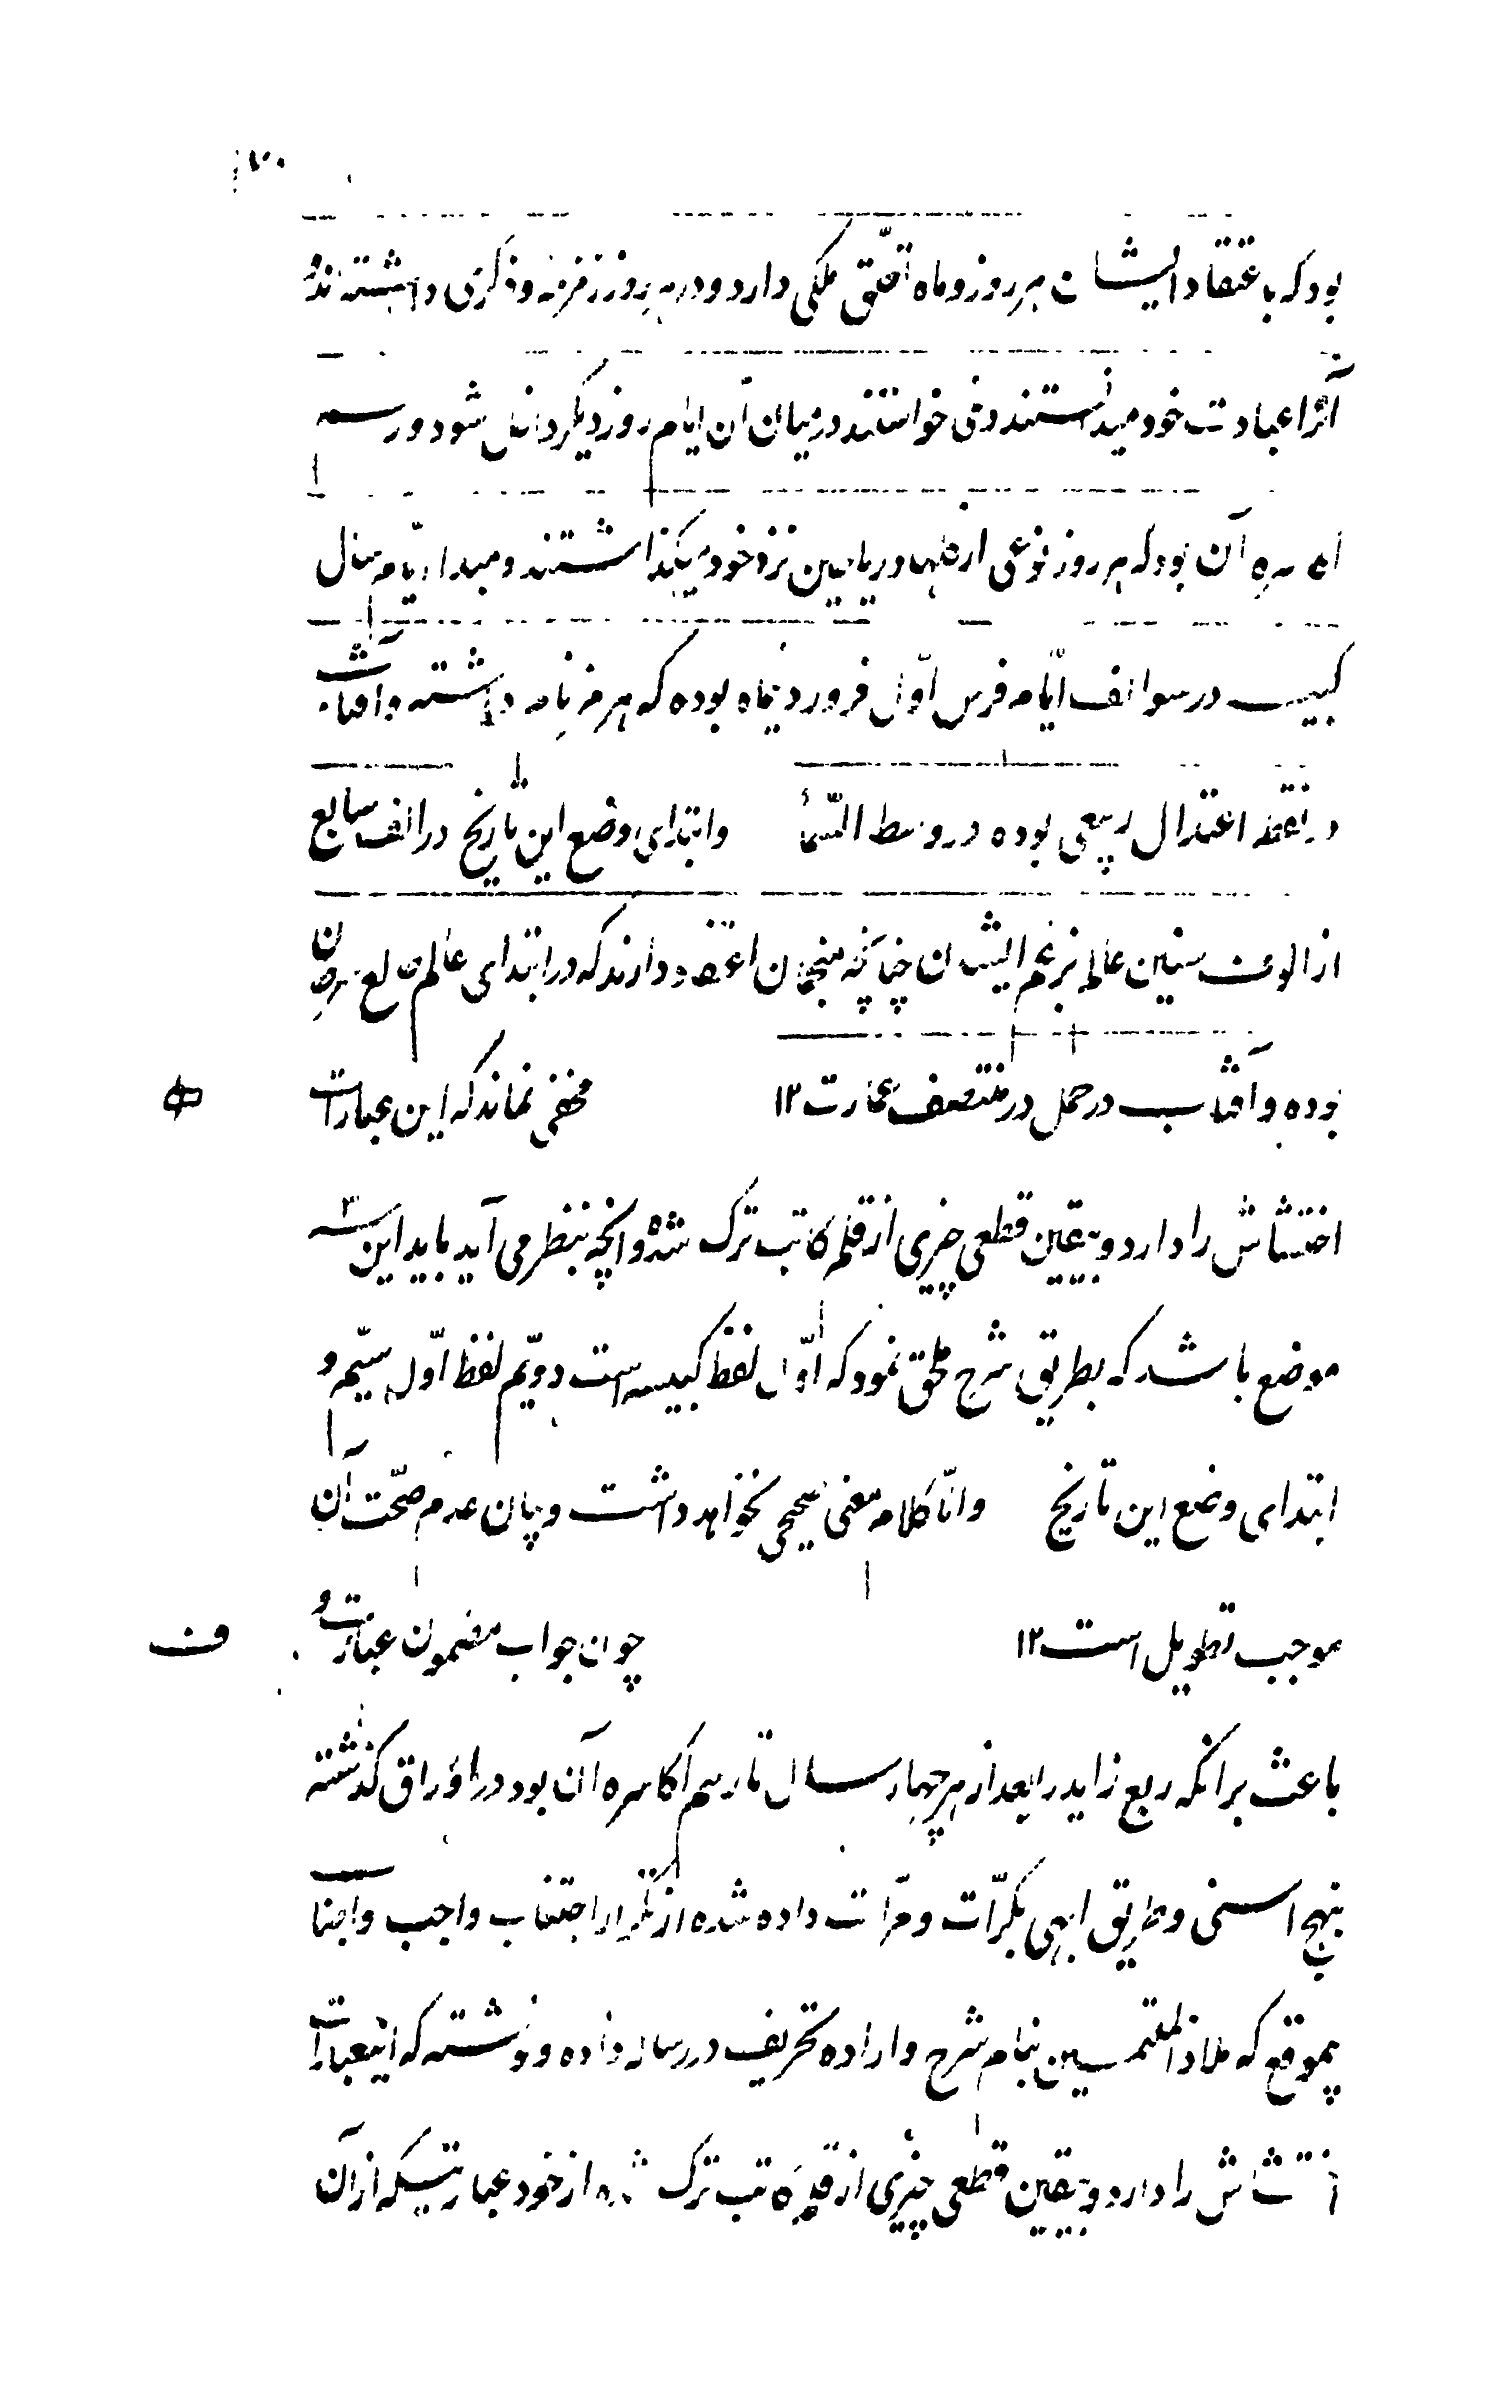 ۱۷۰
بود که باعتقاد ایشان هر روز و ماه تعلّق ملکی دارد و در هر روز زمزمه و ذکری داشته اند و
آنرا عبادت خود میدانستند و نمی خواستند در میان آن ایام روز دیگر داخل شود و رسم
اکاسره آن بود که هر روز نوعی از گلها و ریاحین نزد خود میگذاشتند و مبدا ایّام سال
کبیسه در سوالف ایّام فرس اوّل فروردینماه بوده که هرمز نام داشته و آفتاب
در نقطه اعتدال ربیعی بوده در وسط السّماء وابتدای وضع این تاریخ در الف سابع
از الوف سنین عالم بزعم ایشان چنانچه منجمان اعتقاد دارند که در ابتدای عالم طالع سرطان
بوده و آفتاب در حمل در منتصف عمارت ۱۲ مخفی نماند که این عبارات
اغتشاش را دارد و بیقین قطعی چیزی از قلم کاتب ترک شده و آنچه بنظر می آید باید این سه
موضع باشد که بطریق شرح ملحق نمود که اوّل لفظ کبیسه است دویّم لفظ اوّل سیّم و
ابتدای وضع این تاریخ و الّا کلام معنی صحیحی نخواهد داشت و بیان عدم صحّت آن
موجب تطویل است ۱۲ چون جواب مضمون عبارت و
باعث بر آنکه ربع زاید را بعد از هر چهار سال تا رسم اکاسره آن بود در اوراق گذشته
بنهج اسنی و طریق ابهی بکرّات و مرّات داده شده از تکرار اجتناب واجب و اجتناب
بموقع که ملاذ الملتمسین بنام شرح و اراده تحریف در رساله داده و نوشته که اینعبارات
اغتشاش را دارد و بیقین قطعی چیزی از قلم کاتب ترک شده از خود عبارتیکه از آن
ف